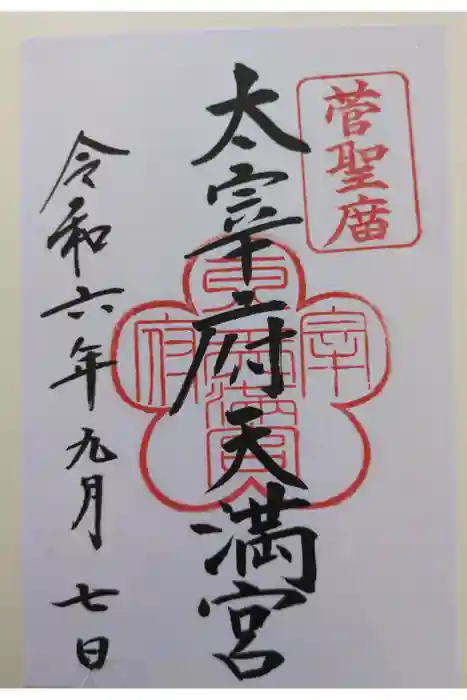 菅聖庿
太宰府天満宮
令和六年九月七日